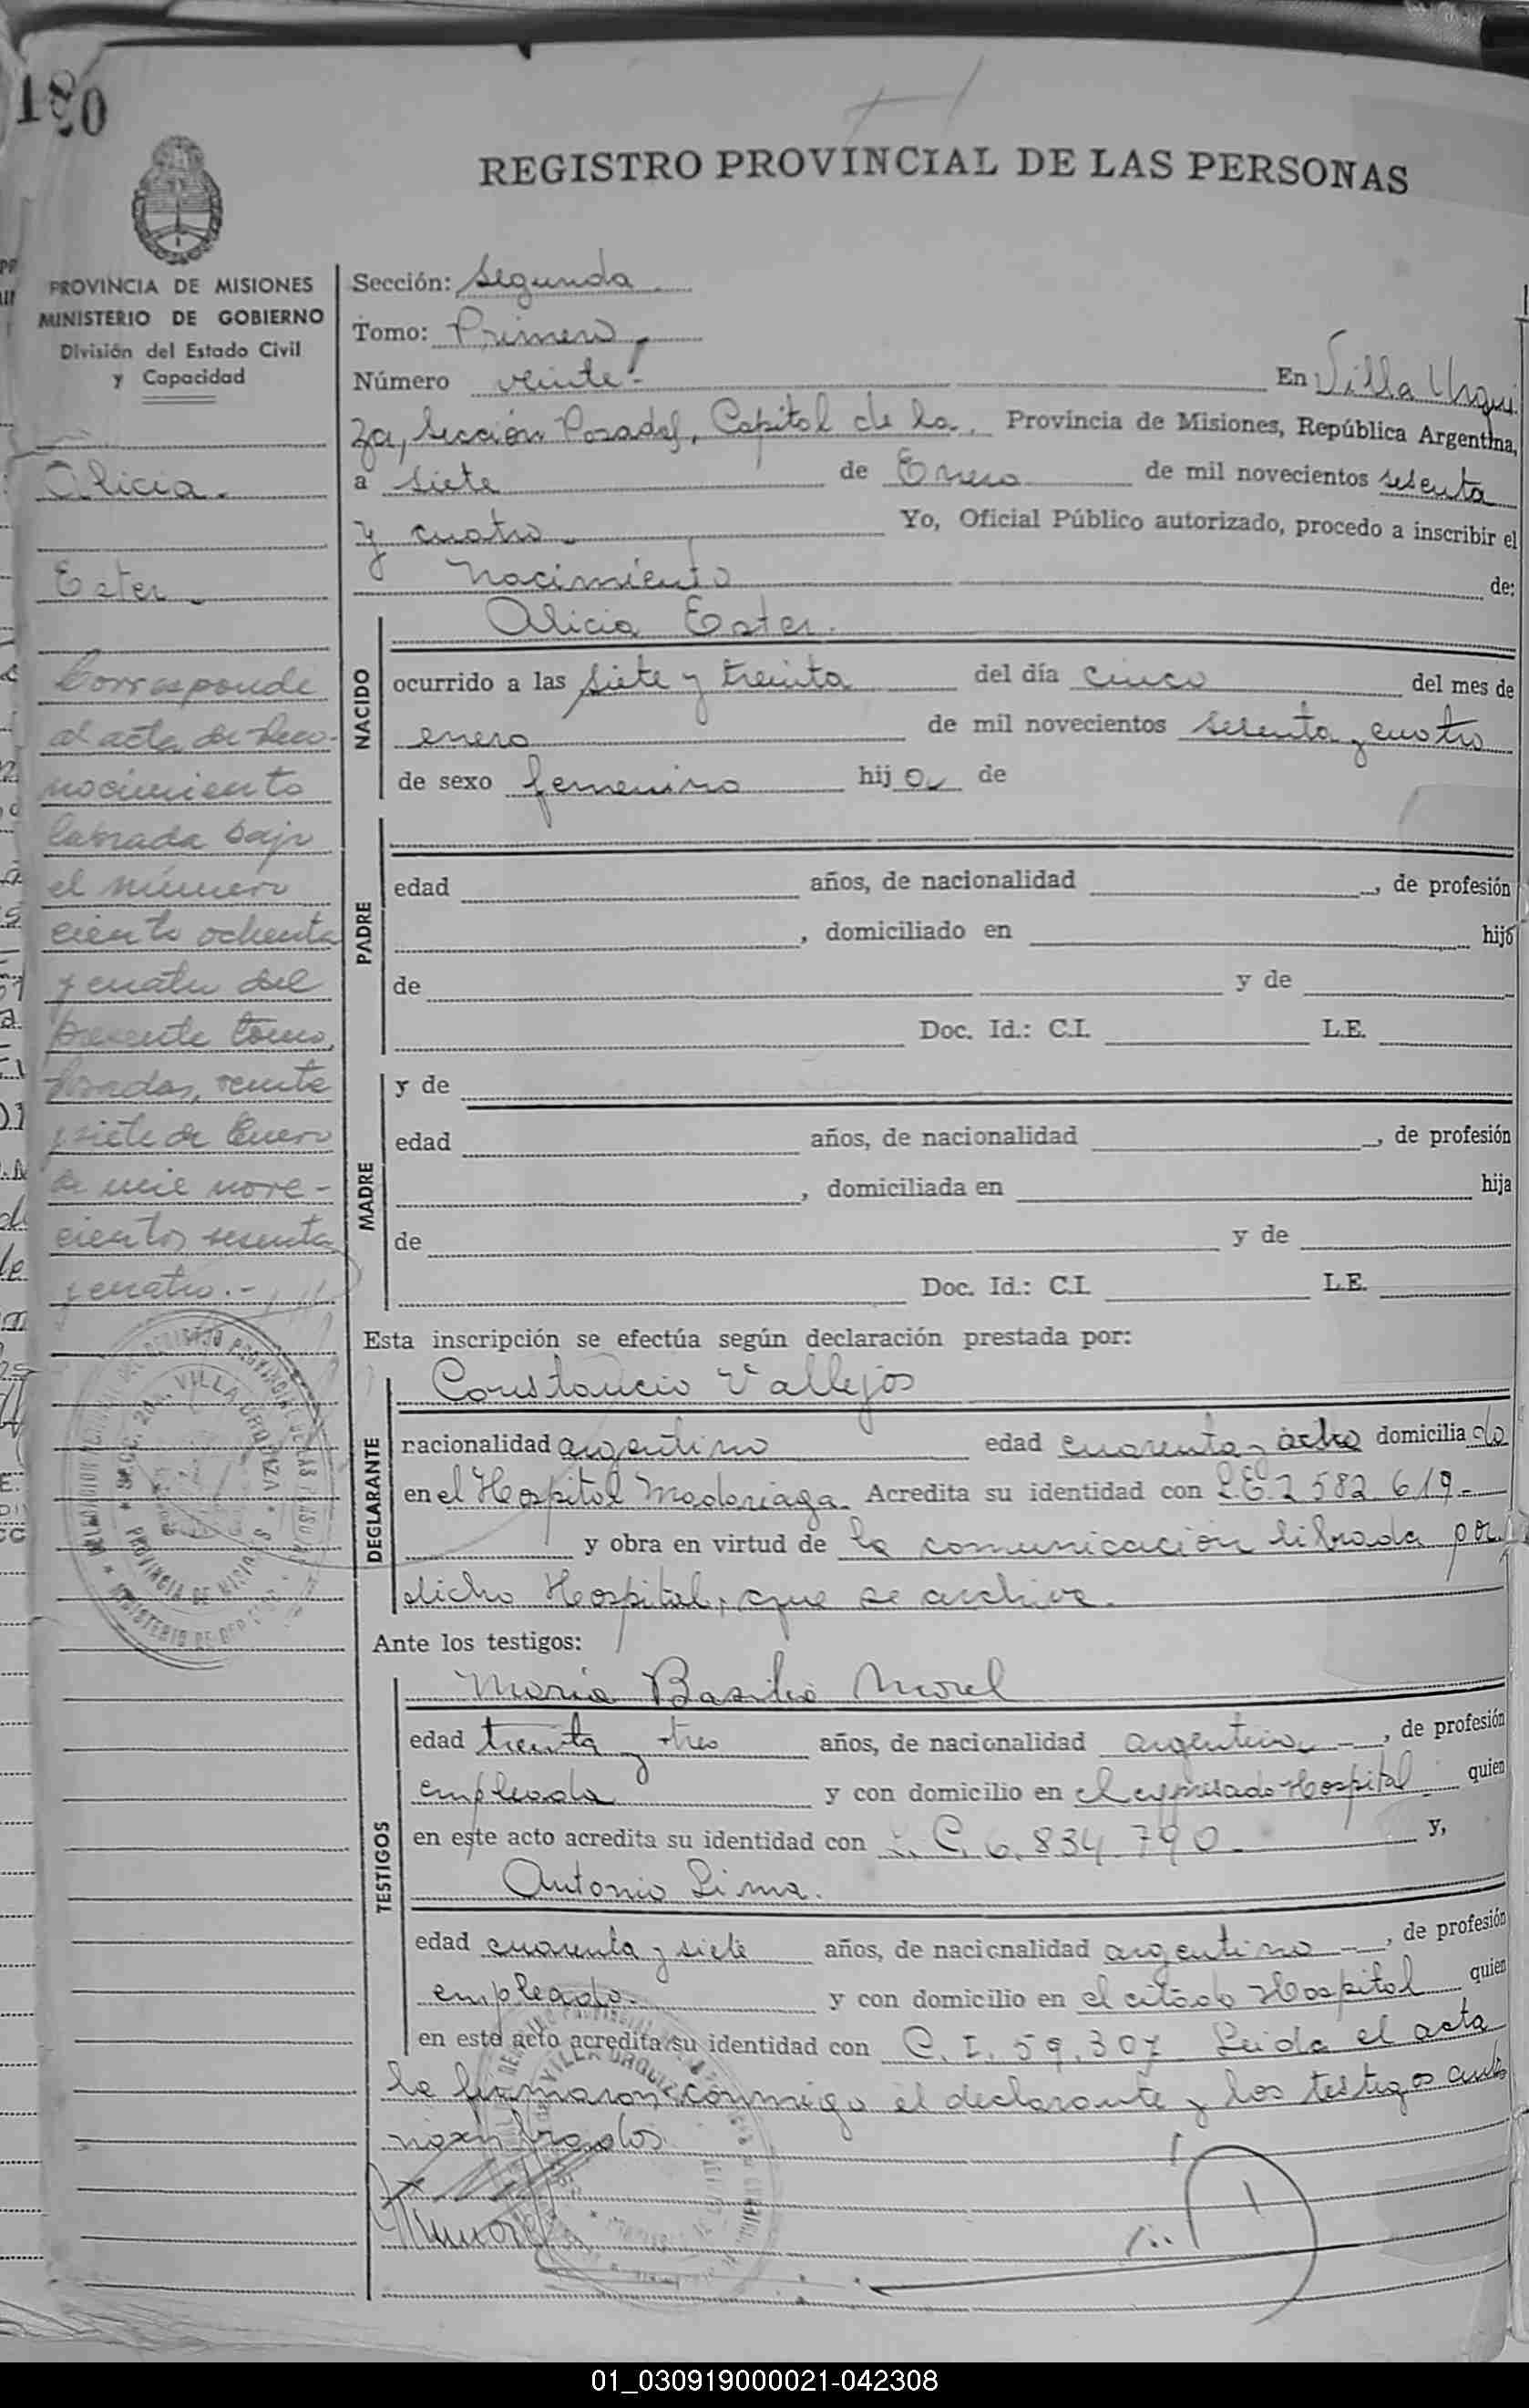 180
REGISTRO PROVINCIAL DE LAS PERSONAS
PROVINCIA DE MISIONES
MINISTERIO DE GOBIERNO
División del Estado Civil
y Capacidad
Alicia.
Ester.
Corresponde
al acta de Reco-
nocimiento
labrada bajo
el número
ciento ochenta
y cuatro del
presente tomo,
Posadas, veinte
y siete de Enero
de mil nove-
cientos sesenta
y cuatro.-
Sección: Segunda.
Tomo: Primero
Número veinte.- En Villa Urqui
za, Sección Posadas, Capital de la, Provincia de Misiones, República Argentina,
a siete de Enero de mil novecientos sesenta
y cuatro. Yo, Oficial Público autorizado, procedo a inscribir el
nacimiento de:
NACIDO
Alicia Ester.
ocurrido a las siete y treinta del día cinco del mes de
enero de mil novecientos sesenta y cuatro
de sexo femenino hija de
PADRE
edad años, de nacionalidad , de profesión
, domiciliado en hijo
de y de
Doc. Id.: C.I. L.E.
MADRE
y de
edad años, de nacionalidad , de profesión
, domiciliada en hija
de y de
Doc. Id.: C.I. L.E.
Esta inscripción se efectúa según declaración prestada por:
DECLARANTE
Constancio Vallejos
nacionalidad argentino edad cuarenta y ocho domiciliado
en el Hospital Madariaga. Acredita su identidad con L.E. 2 582 619.-
y obra en virtud de la comunicación librada por
dicho Hospital, que se archiva.
Ante los testigos:
TESTIGOS
Maria Basilia Morel
edad treinta y tres años, de nacionalidad argentina -, de profesión
empleada y con domicilio en el expresado Hospital quien
en este acto acredita su identidad con L. C. 6.834.790.- y,
Antonio Lima.
edad cuarenta y siete años, de nacionalidad argentino -, de profesión
empleado. y con domicilio en el citado Hospital quien
en este acto acredita su identidad con C. I. 59.307 Leida el acta
la firmaron conmigo el declarante y los testigos ante
nombrados
VILLA URQUIZA
PROVINCIA DE MISIONES
01_030919000021-042308